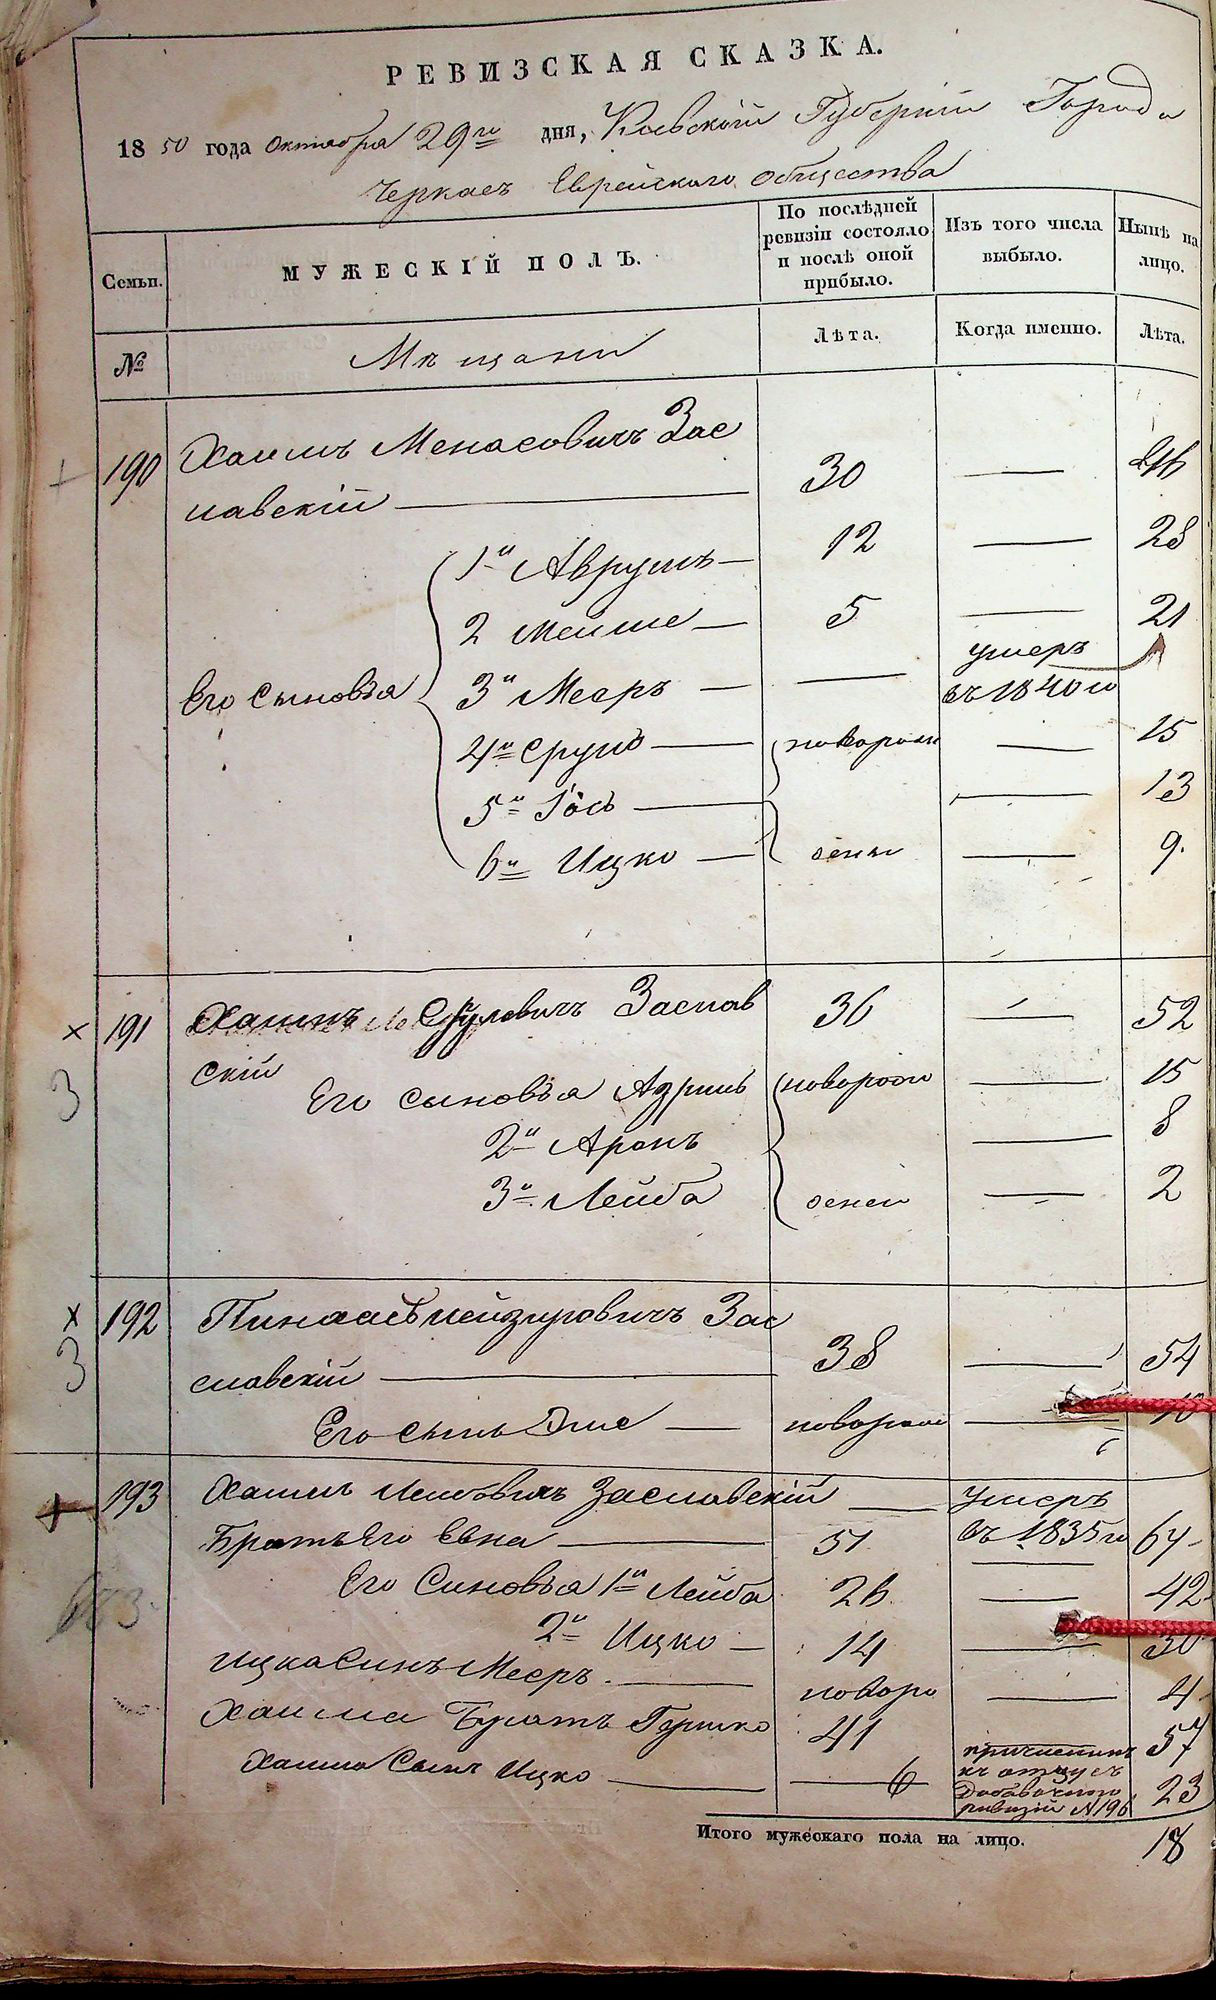 РЕВИЗСКАЯ СКАЗКА.
1850 года октября 29го дня, Киевской Губернии Города
Черкасъ Еврейскаго общества
Семьи.
МУЖЕСКІЙ ПОЛЪ.
По послѣдней ревизіи состояло и послѣ оной прибыло.
Изъ того числа выбыло.
Нынѣ на лицо.
№
Мѣщане
Лѣта.
Когда именно.
Лѣта.
190 Хаимъ Менасовичъ Зас
лавскій 30 — 46
1й Аврумъ — 12 — 28
2 Мейше — 5 — 21
Его сыновья 3й Мееръ — — умеръ въ 1840го
4й Сруль — новорож — 15
5й Іось — 13
6й Ицко — дены — 9.
× 191 Хаимъ Сруловичъ Заслав 36 — 52
скій
3
Его сыновья Азриль новорож — 15
2й Аронъ — 8
3й Лейба дены — 2
× 192 Пинхасъ Лейзеровичъ Зас
3
славскій — 38 — 54
Его сынъ — новорож — 10
193 Хаимъ Лейбовичъ Заславскій — умеръ
Братъ Его — 51 въ 1835го 67
Его Сыновья 1й Лейба 26 — 42
2й Ицко — 14 — 30
Ицка Сынъ Мееръ — новоро — 4
Хаима Братъ Гершко 41 57
Хаима Сынъ Ицко — 6 причисленъ къ отцу съ Добавочного ревизіи №196 23
Итого мужескаго пола на лицо. 18